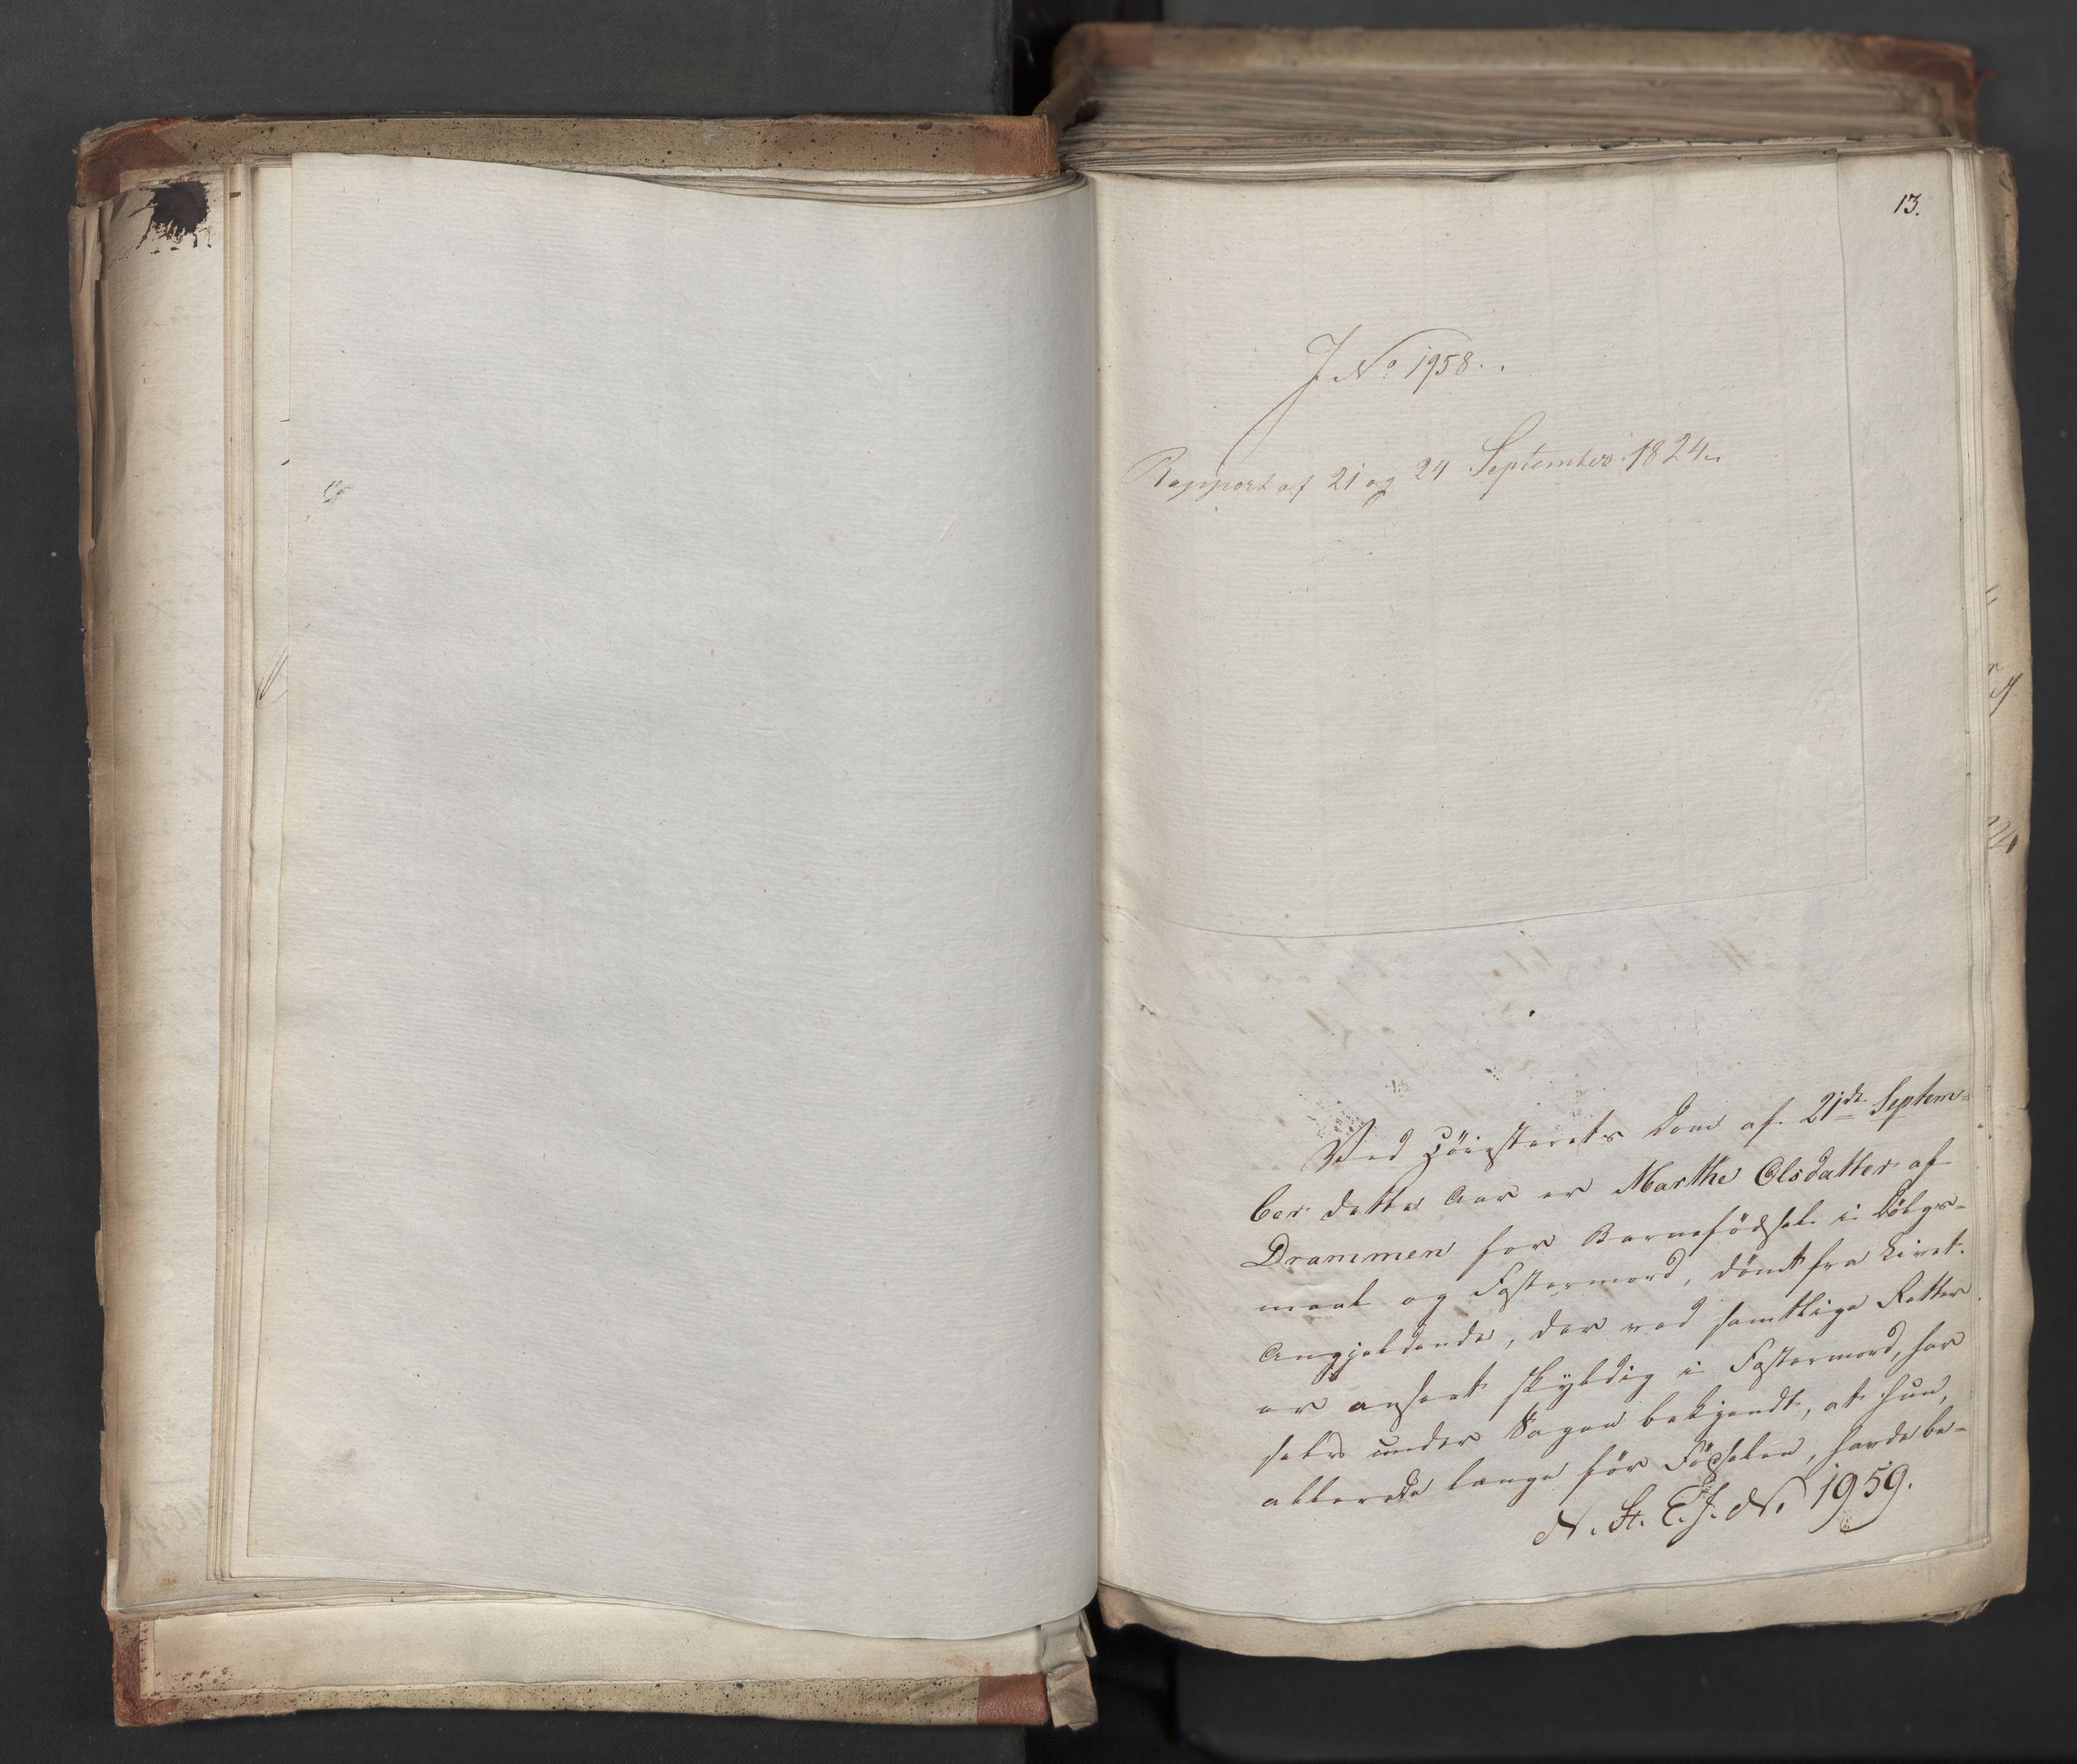 13.
J No 1958.
Rapport af 21 og 24 September 1824
Ved Høiesterets Dom af 21de Septem=
ber dette Aar er Marthe Olsdatter af
Drammen for Barnefödsel i Dölgs-
maal og Fostermord, dömt fra Livet.
Angjeldende, der ved samtlige Retter
er anseet skyldig i Fostermord, har
selv under Sagen bekjendt, at hun,
allerede længe för Födselen, havde be-
N. St. E. J. No 1959.